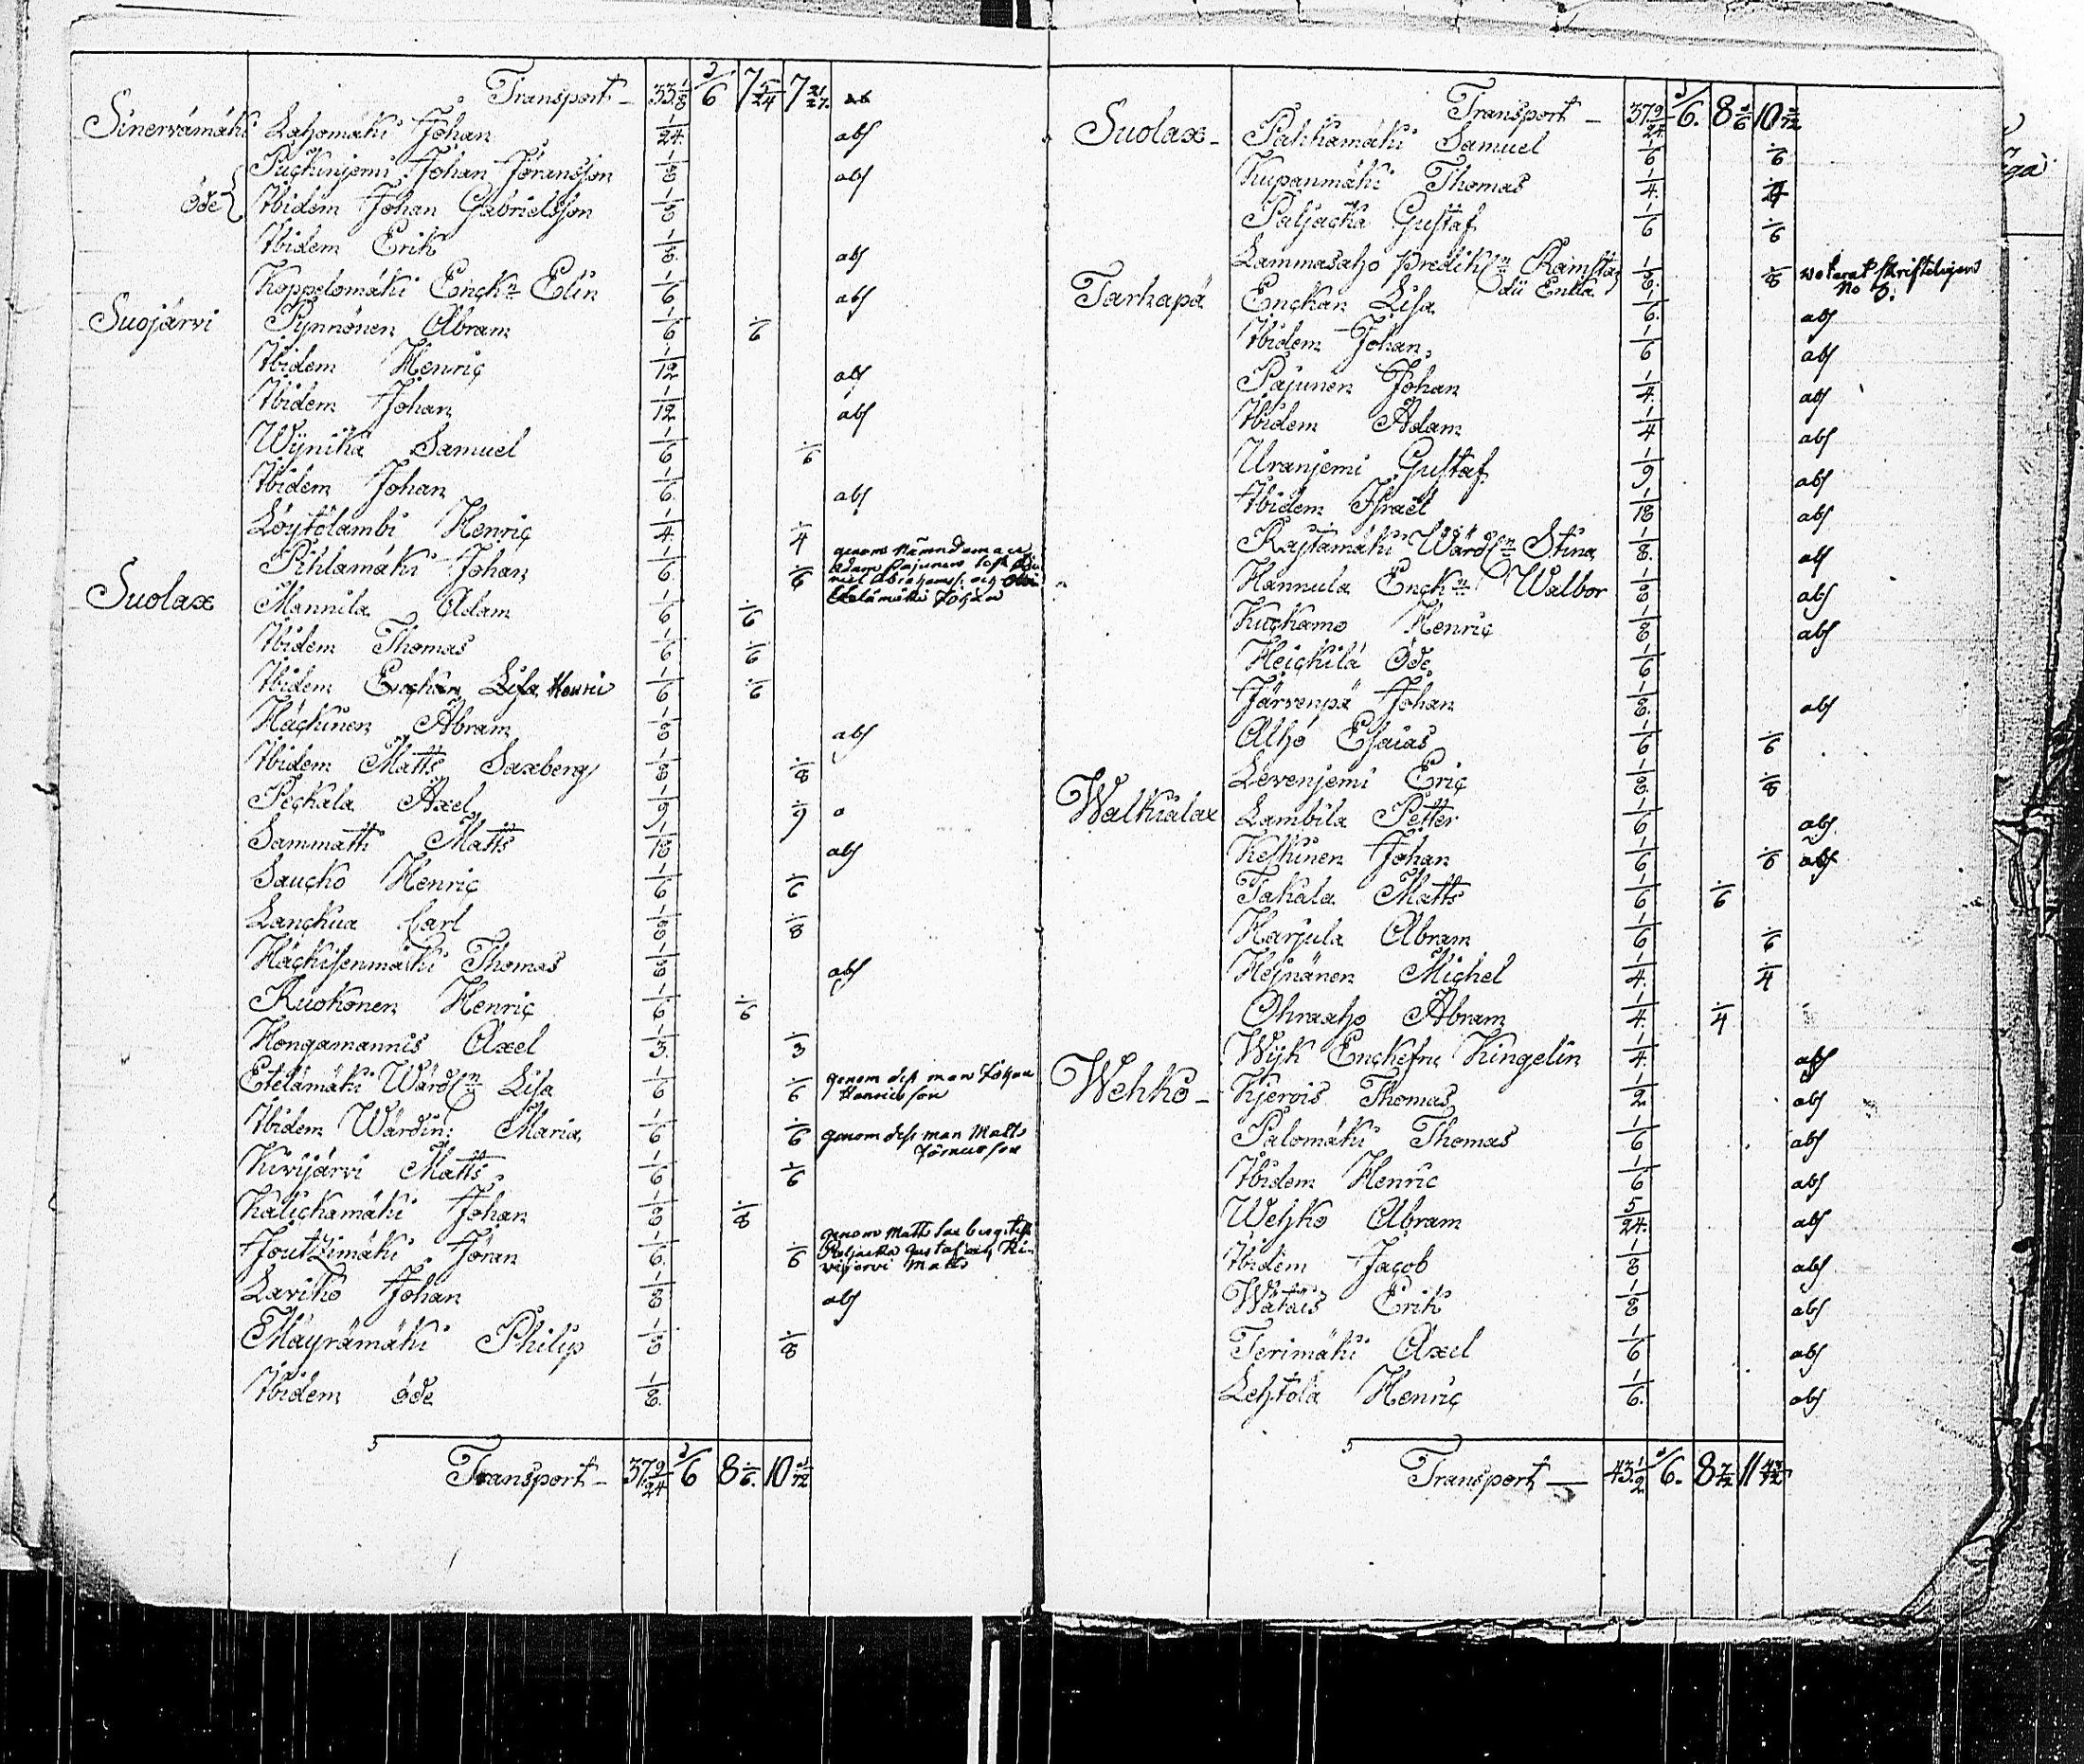 Transport – 33 1/8 2/6 7 5/24 7 21/27.
Sinervämäki Lahomäki Johan 1/24. abs
Puckinjemi Johan Jöransson 1/8 abs
öde Ibidem Johan Gabrielsson 1/8
Ibidem Erik 1/8. abs
Koppelomäki Enckn Elin 1/6 abs
Suojärvi Pynnönen Abram 1/6 1/6
Ibidem Henric 1/12 abs
Ibidem Johan 1/12 abs
Wynikä Samuel 1/6 1/6
Ibidem Johan 1/6. abs
Löytölambi Henric 1/4. 1/4
Pihlamäki Johan 1/6. 1/6 genom Nämndeman
Adam Pajunen
Etelämäki Johan
Suolax Mannila Adam 1/6 1/6
Ibidem Thomas 1/6 1/6
Ibidem Enckan Lisa Henric 1/6 1/6
Häckinen Abram 1/8 abs
Ibidem Matts Saxberg 1/8 1/8
Peckala Axel 1/9 1/9
Sammatti Matts 1/18 abs
Saucko Henric 1/6 1/6
Lanckua Carl 1/8 1/8
Häckisenmäki Thomas 1/8 abs
Ruokonen Henric 1/6 1/6
Hongamannis Axel 1/3. 1/3
Etelämäki Wärdsn Lisa 1/6 1/6 genom dess man Johan
Henricsson
Ibidem Wärdin: Maria 1/6 1/6 genom dess man Matts
Kivijärvi Matts 1/6 1/6
Kalickamäki Johan 1/8 1/8
Joutzimäki Jöran 1/6. 1/6 genom Matts Saxberg
Paljacka Gustaf och Ki-
vijärvi Matts
Laviko Johan 1/8 abs
Mäyrämäki Philip 1/8 1/8
Ibidem öde 1/8.
Transport – 37 9/24 2/6 8 1/6. 10 1/12
Transport – 37 9/24 2/6. 8 1/6 10 1/12
Suolax – Pahkamäki Samuel 1/6 1/6
Kupanmäki Thomas 1/4. 1/4
Paljacka Gustaf 1/6 1/6
Lammasaho Prediksn Ramsta 1/8. 1/8 voterat skrifteligen
dii Enka No 8.
Tarhapä Enckan Lisa 1/6. abs
Ibidem Johan 1/6 abs
Pajunen Johan 1/4. abs
Ibidem Adam 1/4 abs
Uranjemi Gustaf 1/9 abs
Ibidem Israel 1/18 abs
Rajtamäki Wärdsn Stina 1/8. abs
Hannula Enckn Walbor 1/8 abs
Kuckamo Henric 1/8 abs
Heickilä Öde 1/6
Järvenpä Johan 1/8. abs
Alhó Esaias 1/6 1/6
Levenjemi Eric 1/8. 1/8
Walkialax Lambila Petter 1/6 abs
Keskinen Johan 1/6 1/6 abs
Takala Matts 1/6 1/6
Harjula Abram 1/6 1/6
Hejnänen Michel 1/4. 1/4
Ohraaho Abram 1/4. 1/4
Wijk Enckefru Kingelin 1/4. abs
Wehko – Kjervis Thomas 1/2. abs
Palomäki Thomas 1/6 abs
Ibidem Henric 1/6 abs
Wehko Abram 5/24. abs
Ibidem Jacob 1/8 abs
Wätäis Erik 1/8 abs
Terimäki Axel 1/6 abs
Lehtola Henric 1/6. abs
Transport — 43 1/2 2/6. 8 7/12